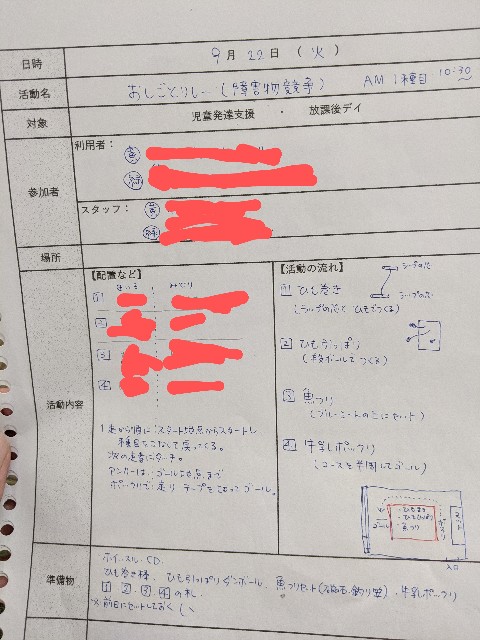 日時 9月 22日 (火)
活動名 おしごとリレー(障害物競争) AM 1種目 10:30~
対象 児童発達支援 ・ 放課後デイ
参加者
利用者:
黄
緑
スタッフ:
黄
緑
場所
活動内容
【配置など】
きいろ みどり
1
2
3
4
1走から順にスタート地点からスタートし
種目をこなして戻ってくる。
次の走者にタッチ。
アンカーは、ゴール地点まで
ポックリで走り テープをきってゴール。
【活動の流れ】
1 ひも巻き
(ラップの芯と ひもでつくる)
ラップの芯
ラップの芯
2 ひも引っぱり
(段ボールでつくる)
3 魚つり
(ブルーシートの上にセット)
4 牛乳ポックリ
(コースを半周してゴール)
・ひもまき
・ひもひっぱり
・魚つり
ゴール
マット
入口
準備物
ホイッスル、CD、
ひも巻き棒、ひも引っぱりダンボール、魚つりセット
牛乳ポックリ
1 2 3 4 の札、
※前日にセットしておく